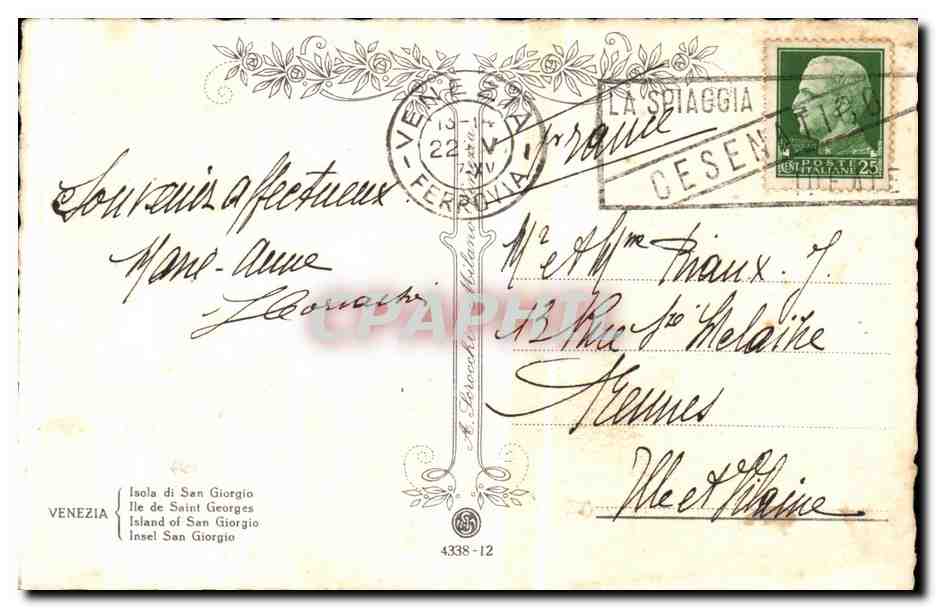 VENEZIA
13-14
22 V
XV
FERROVIA
LA SPIAGGIA
CESENATICO
IDEALE
POSTE
ITALIANE
CENT 25
France
Souvenir affectueux
Marie-Anne
Mr et Mme Riaux. J.
13 Rue Ste Melaine
Rennes
Ille et Vilaine
A. Scrocchi Milano
CPAPHIL
VENEZIA
Isola di San Giorgio
Ile de Saint Georges
Island of San Giorgio
Insel San Giorgio
4338-12